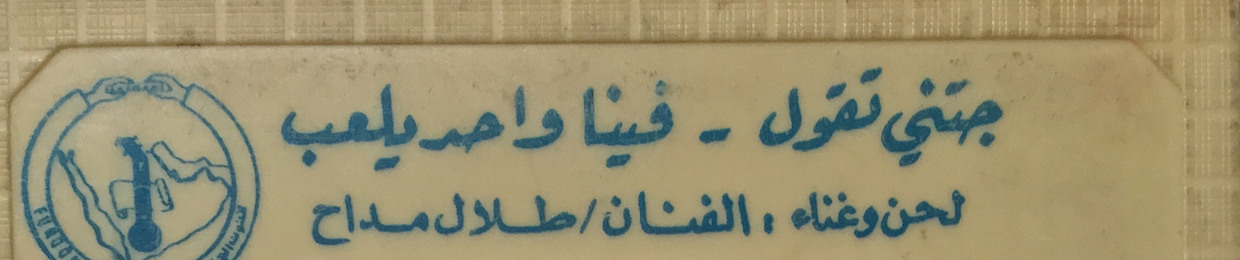 جتني تقول - فينا واحد يلعب
لحن وغناء : الفنان/طلال مداح